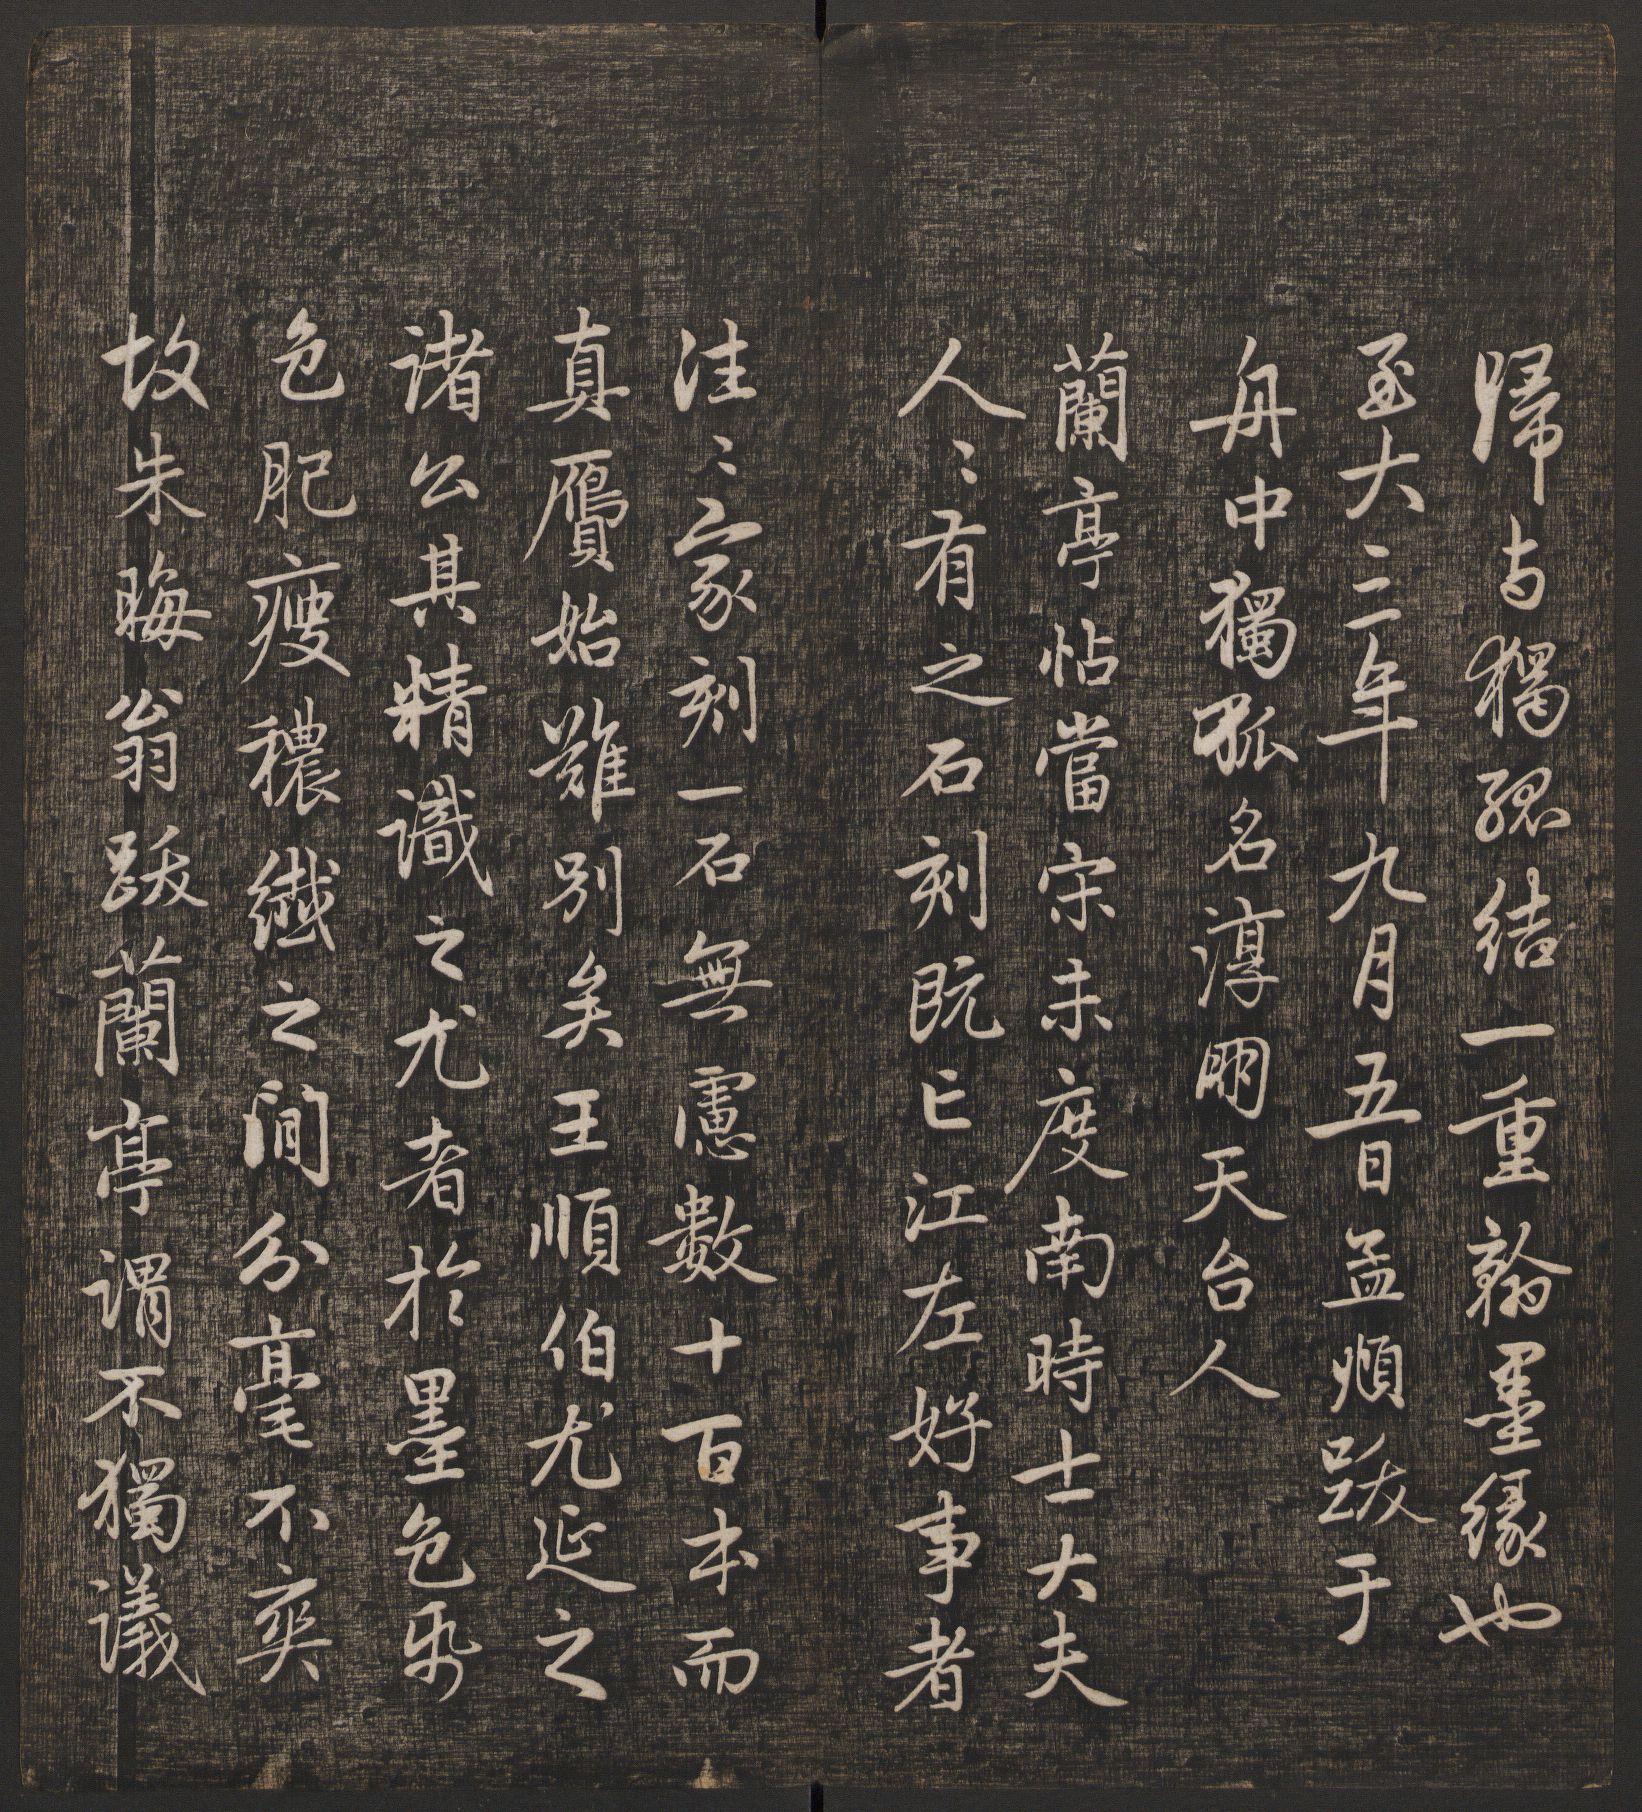 歸与獨孤結一重翰墨緣也
至大三年九月五日孟頫跋于
舟中獨孤名淳朋天台人
蘭亭帖當宋未度南時士大夫
人〻有之石刻既亡江左好事者
往〻家刻一石無慮數十百本而
真贗始難別矣王順伯尤延之
諸公其精識之尤者於墨色紙
色肥瘦穠纖之間分毫不爽
故朱晦翁跋蘭亭謂不獨議